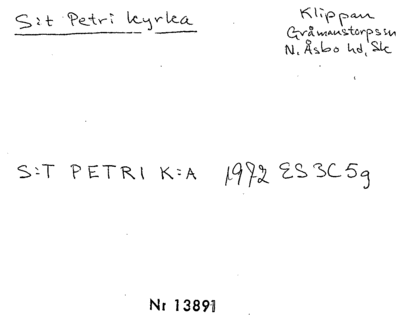 S:t Petri kyrka
Klippan
Gråmanstorpsn
N. Åsbo hd, Sk
S:T PETRI K:A 1972 ES3C5g
Nr 13891